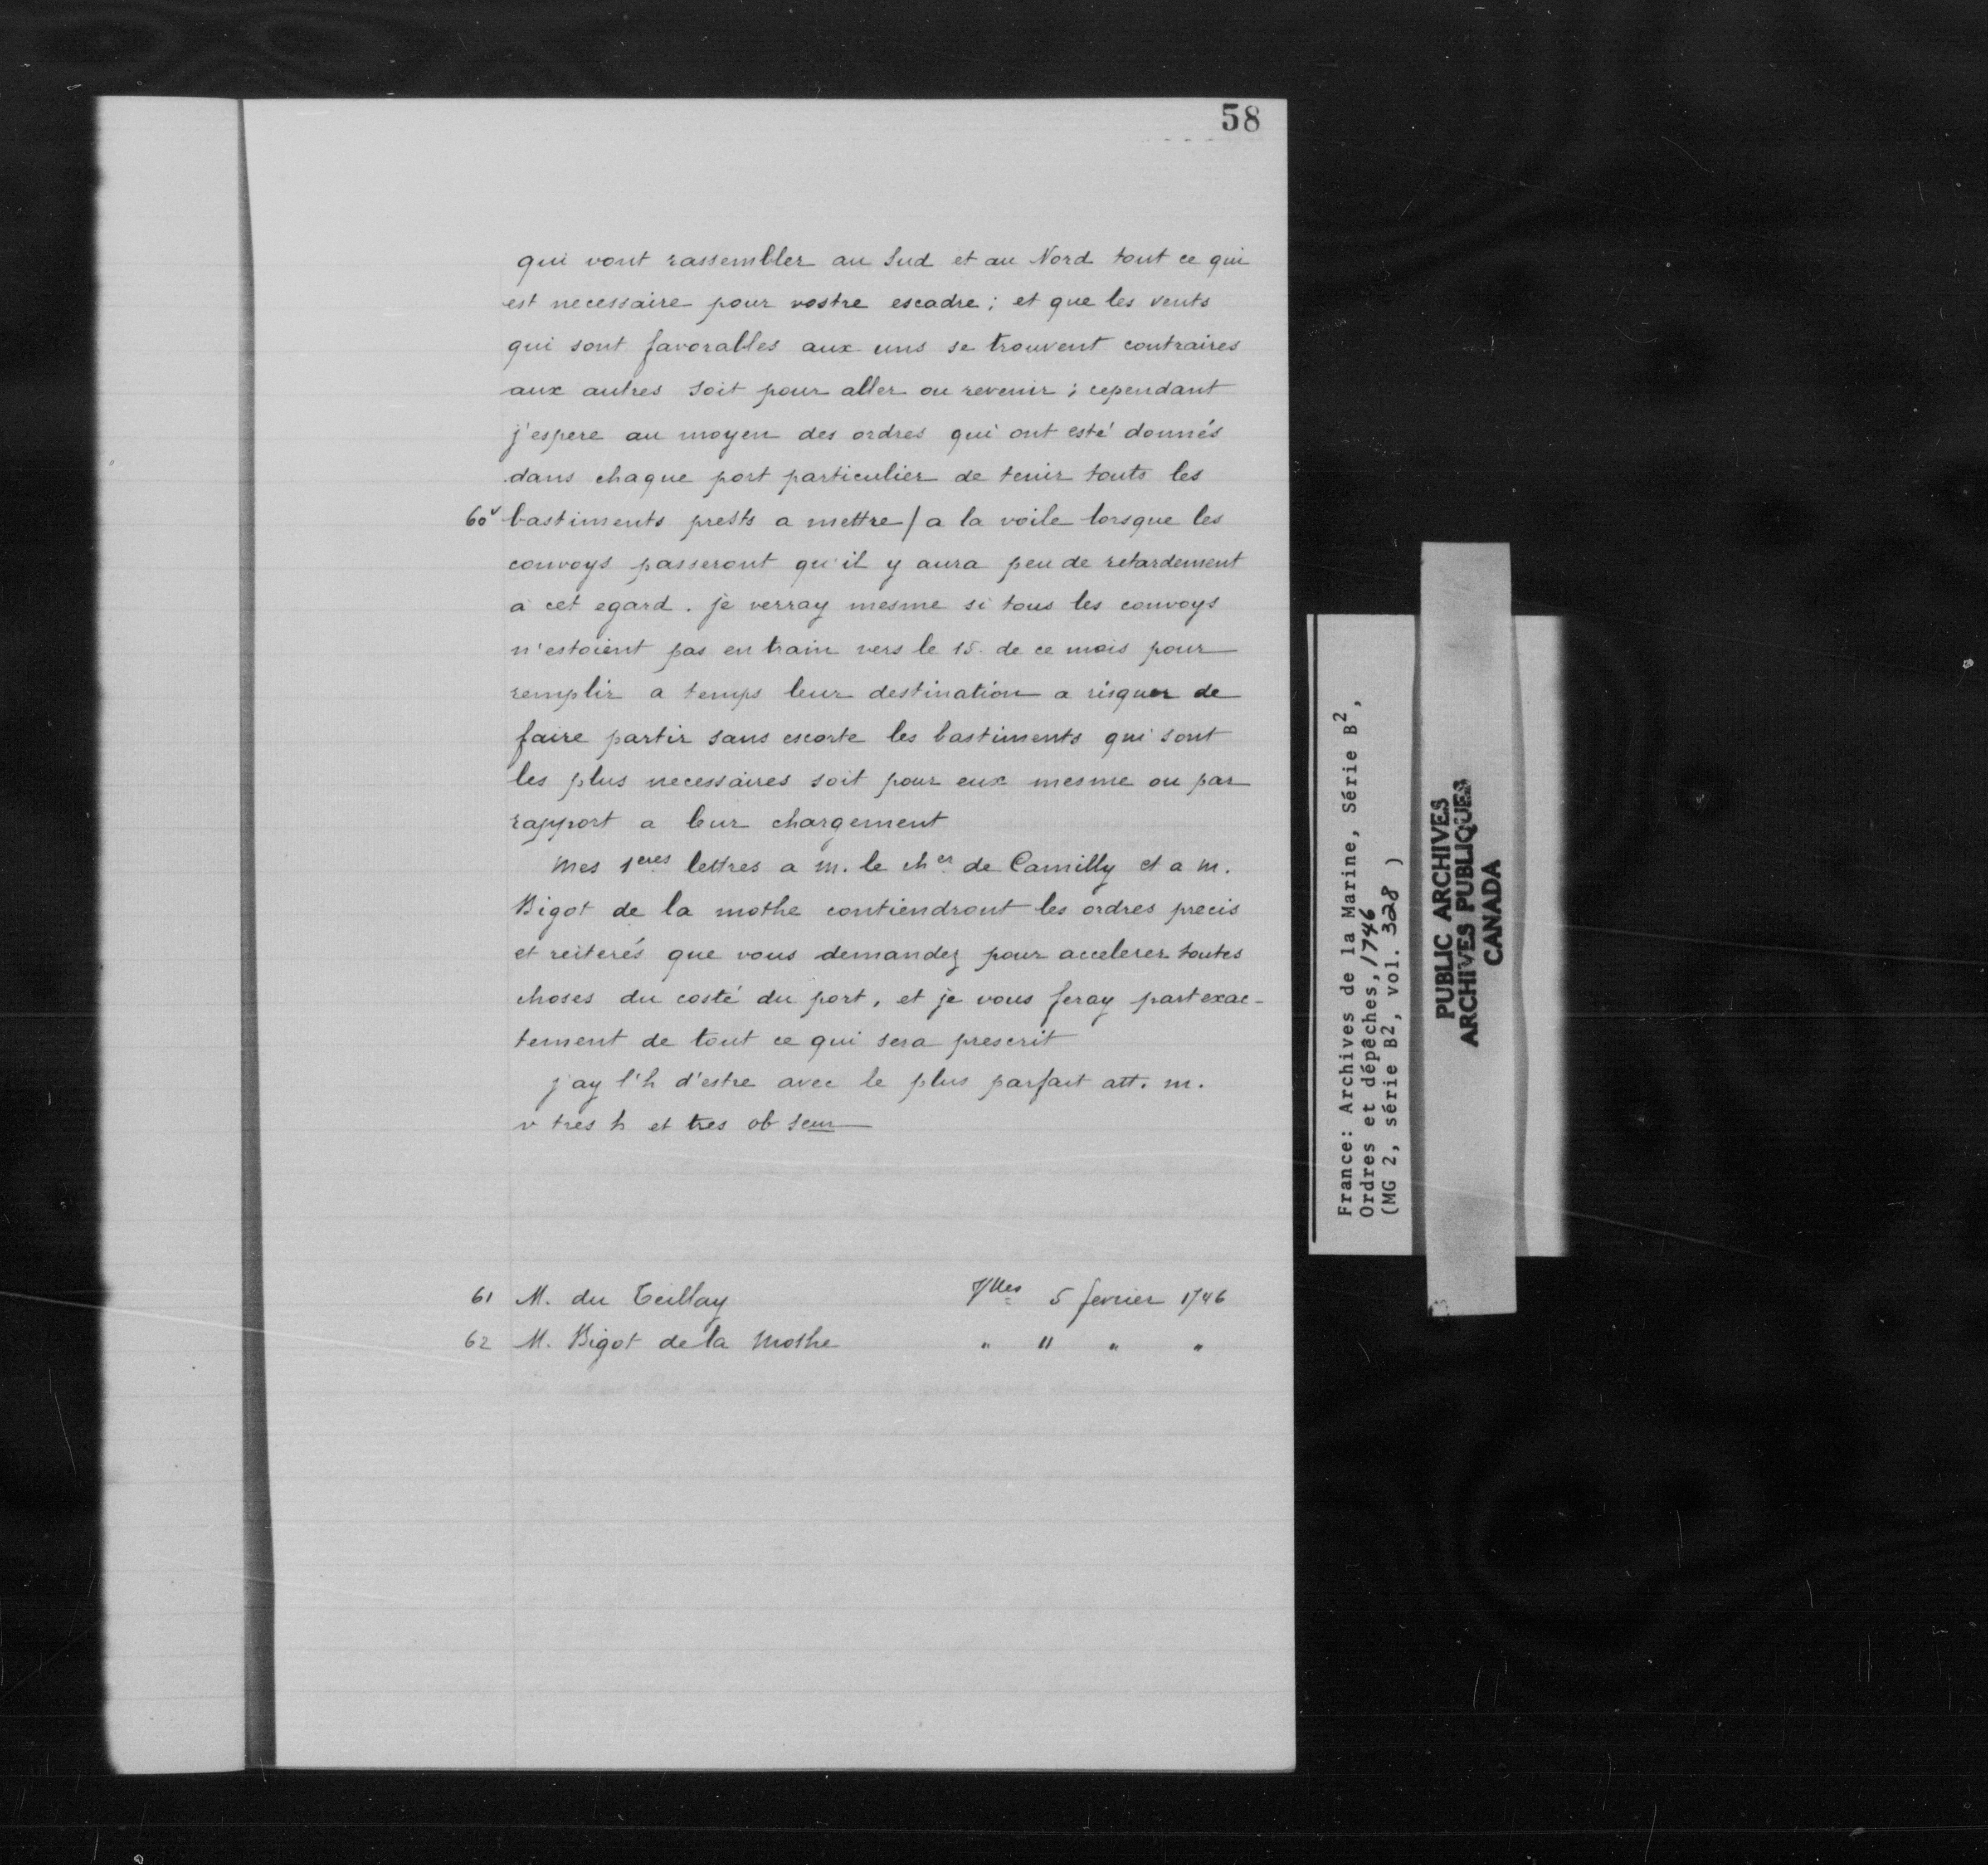 58
qui vont rassembler au Sud et au Nord tout ce qui
est necessaire pour vostre escadre ; et que les vents
qui sont favorables aux uns se trouvent contraires
aux autres soit pour aller ou revenir ; cependant
j'espere au moyen des ordres qui ont esté donnés
dans chaque port particulier de tenir touts les
60v bastiments prests a mettre / a la voile lorsque les
convoys passeront qu'il y aura peu de retardement
a cet egard. je verray mesme si tous les convoys
n'estoient pas en train vers le 15. de ce mois pour
remplir a temps leur destination a risquer de
faire partir sans escorte les bastiments qui sont
les plus necessaires soit pour eux mesme ou par
rapport a leur chargement
Mes 1eres lettres a m. le cher de Camilly et a m.
Bigot de la mothe contiendront les ordres precis
et reiterés que vous demandez pour accelerer toutes
choses du costé du port, et je vous feray part exac-
tement de tout ce qui sera prescrit
j'ay l'h d'estre avec le plus parfait att. m.
v tres h et tres ob seur
61 M. du Teillay Vlles 5 fevrier 1746
62 M. Bigot de la Mothe " " " "
France: Archives de la Marine, Série B2,
Ordres et dépêches, 1746
(MG 2, série B2, vol. 328 )
PUBLIC ARCHIVES
ARCHIVES PUBLIQUES
CANADA